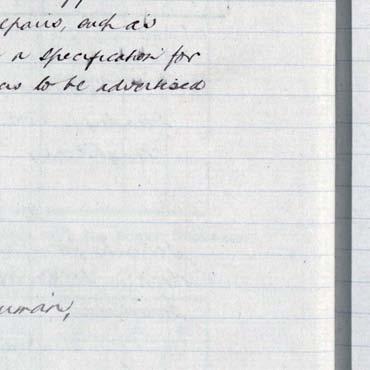 epairs, such as
a specification for
as to be advertised